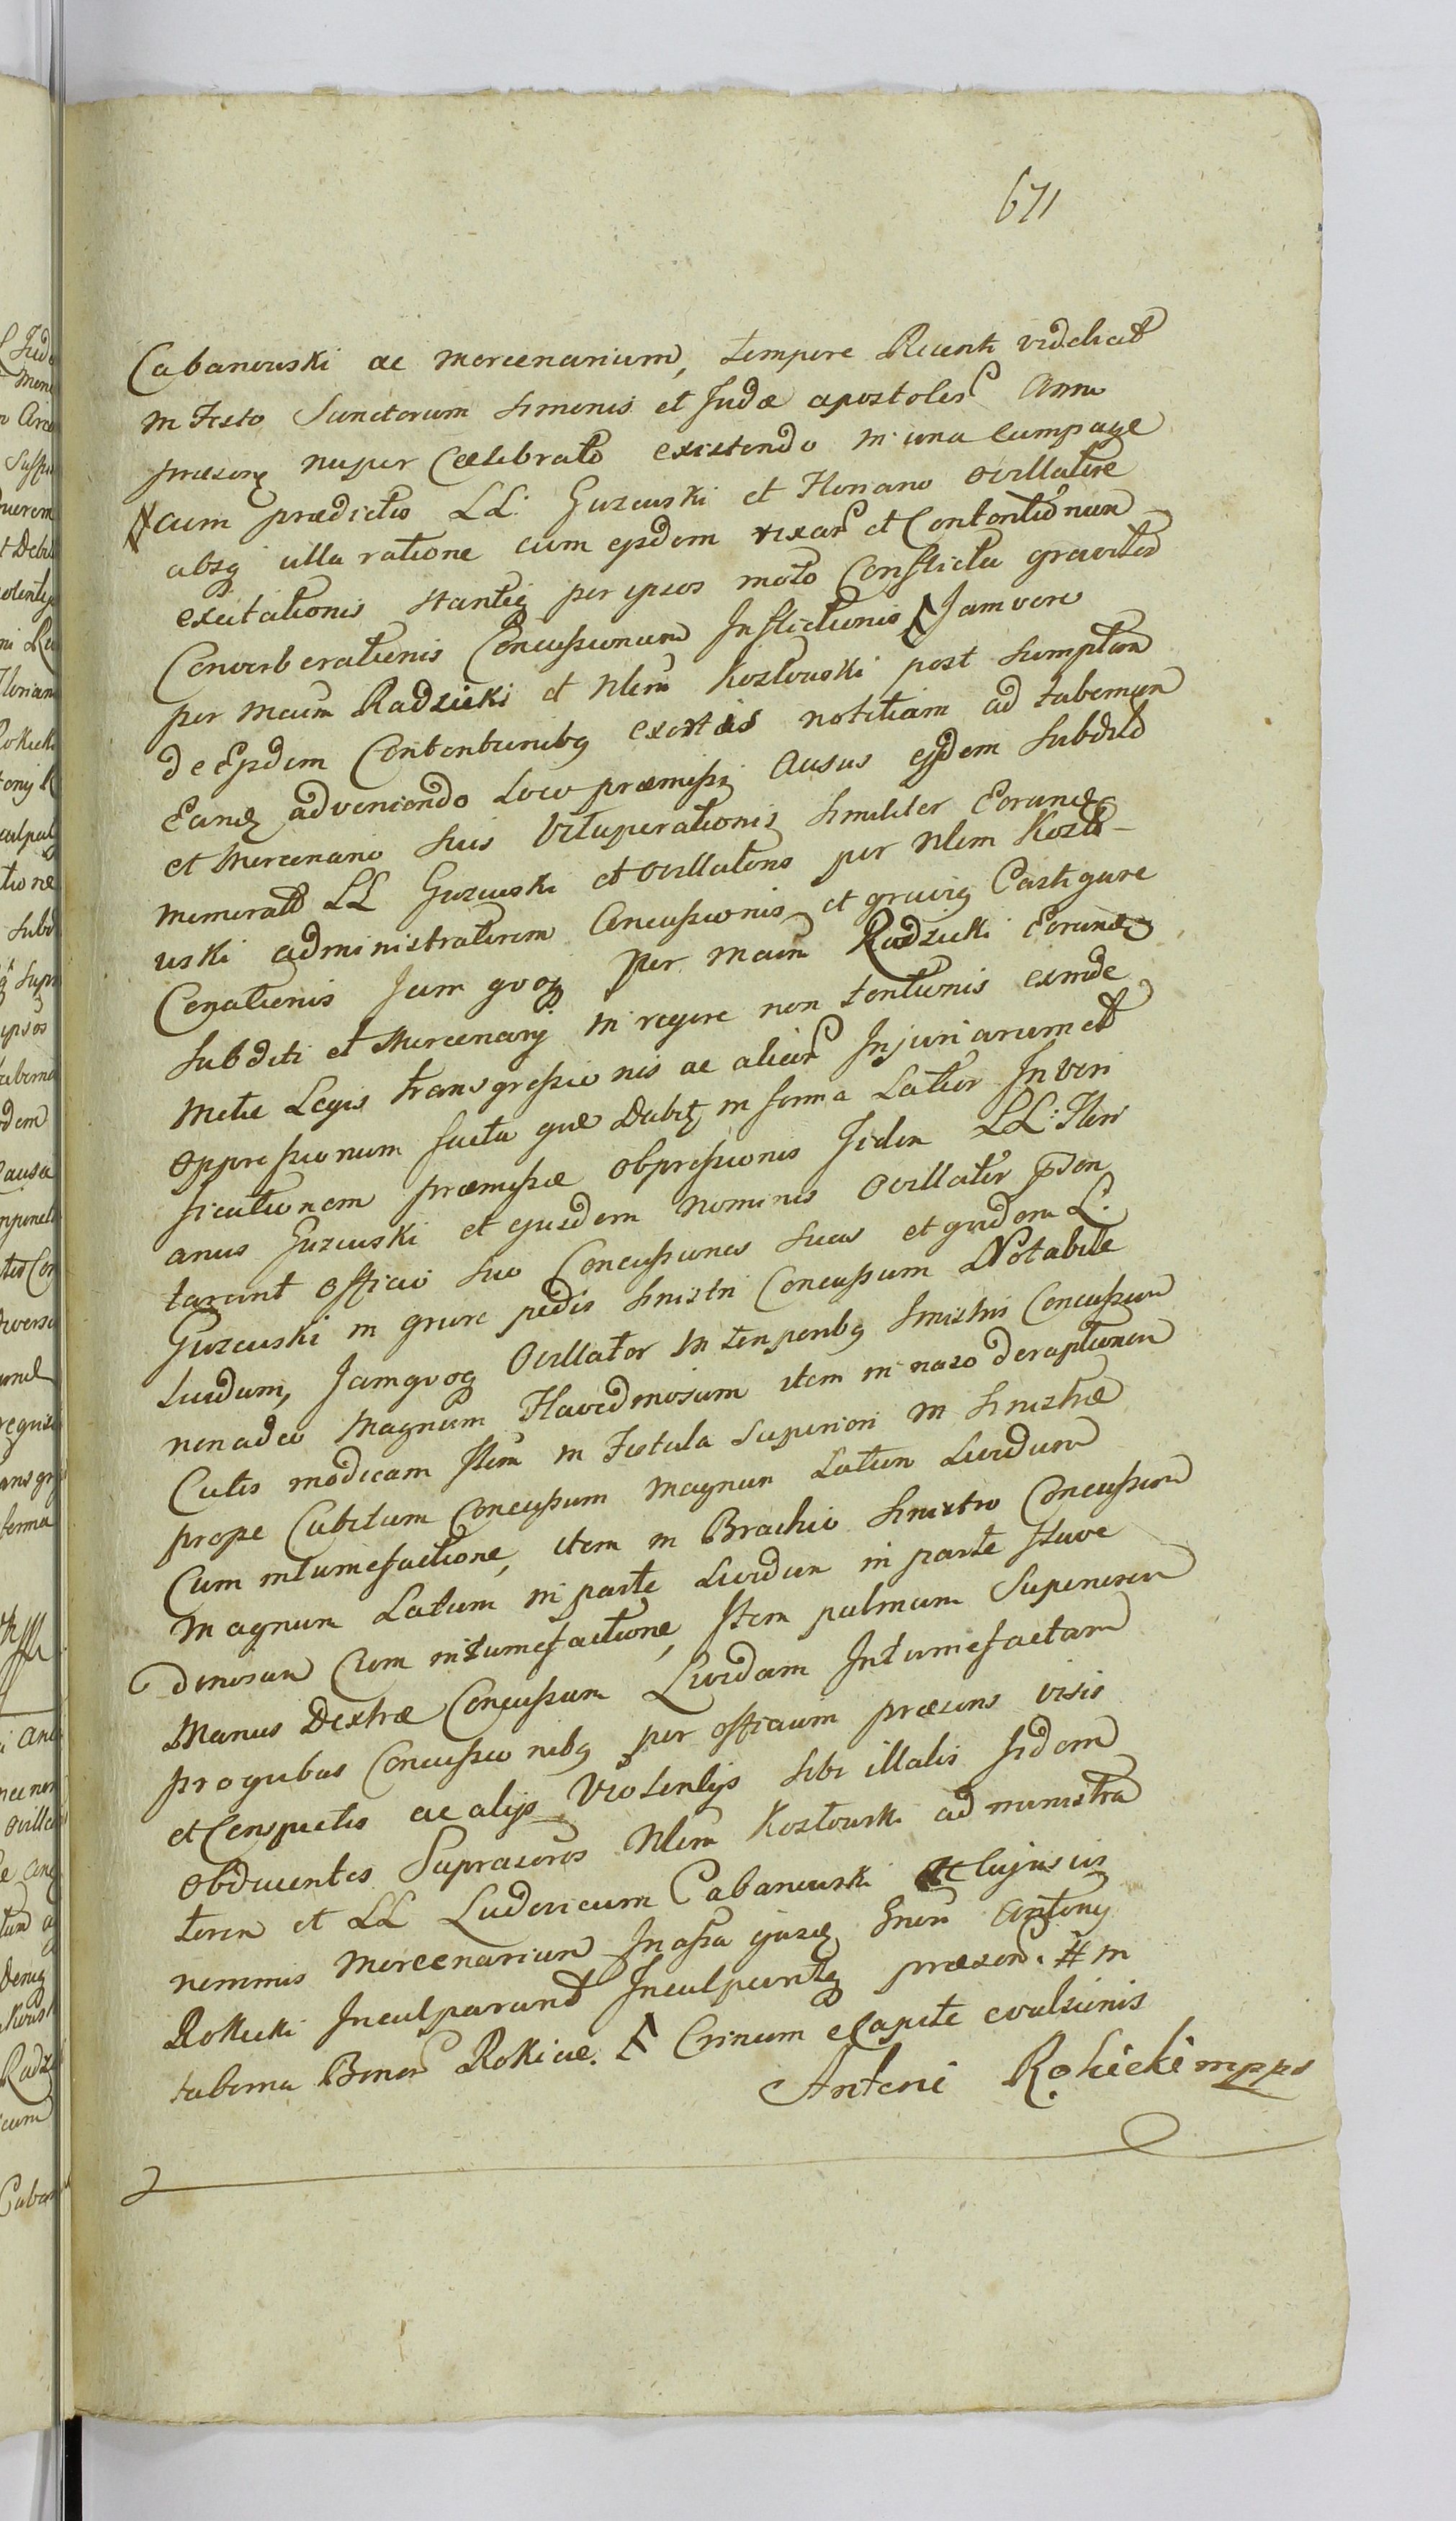 671
Cabanowski ac mercenarium, tempore Recenti videlicet
in Festo Sanctorum Simonis et Judæ apostolor Anni
præsenq nuper Cælebrato existendo in una Compage
cum prædictis LL: Guzewski et Floriano ovillatore
absq ulla ratione cum ejsdem rixar et Contentionum
excitationis stantiq per ipsos moto Conflictu graviter
Converberationis Concussionum Inflictionis Jam vero
per Mcum Radzicki et Nlem Kozłowski post sumptam
de Ejsdem Contentionibq exortis notitiam ad tabernam
Eandq adveniendo Loco præmissq Ausus ejsdem Subdito
et Mercenario suis Vituperationis similiter Eorundq
memorat LL Guzewski et ovillatoris per Nlem Kozło-
wski administratorem Concussionis et graviq Castigare
Conationis Jam quoq Per Mcum Radzicki Eorundq
Subditi et Mercenarij in rigore non tentionis exinde
Metu Legis transgressionis ac alior Injuriarum et
oppressionum facta quæ Dubitq in forma Latior In Veri
ficationem præmissæ obpressionis Iidem LL: Flori
anus Guzewski et ejusdem Nominis Ovillator præsen
tarunt officio suo Concussiones suas et quidem L:
Guzewski in grure pedis sinistri Concussum Notabile
Lividum, Jamquoq Ovillator in temporibq sinistris Concussum
non adeo Magnum Flavedinosum item in naso deraptionem
Cutis modicam Item in Fistula Superiori in sinistræ
prope Cubitum Concussum magnum Latum Lividum
Cum intumefactione, item in Brachio sinistro Concussum
magnum Latum in parte Lividum in parte flave
dinosum Cum intumefactione, Item palmam Superiorem
Manus Dextræ Concussam Lividam Intumefactam
pro quibus Concussionibq per officium præsens visis
et Conspectis ac alijs Violentijs sibi illatis fidem
obducentes Suprascros Nlem Kozłowski administra
torem et LL Ludovicum Cabanowski et Cujusvis
nominis Mercenarium In assa ipsiq Gnosi Antonij
Rokicki Inculparunt Inculpantq præsen. # in
taberna Bonor Rokice. Crinum e Capite evulsionis
Antoni Rokicki mpps